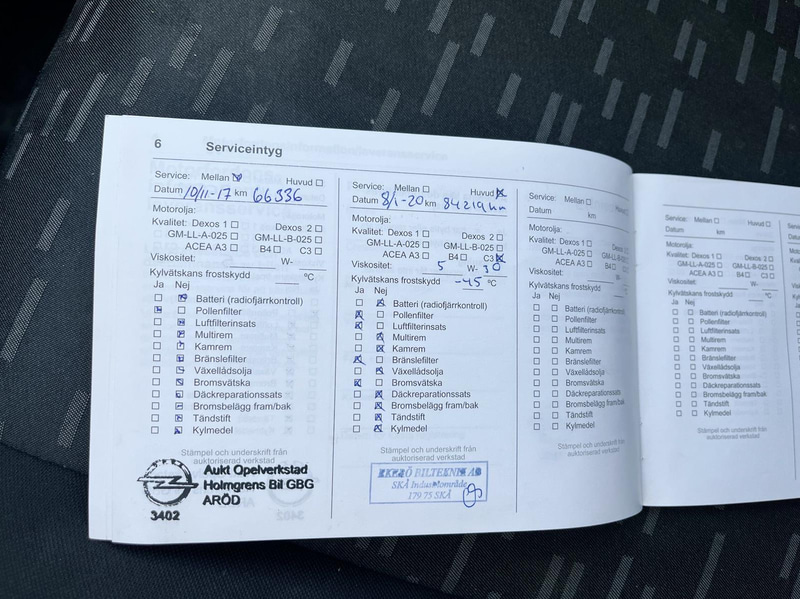 6 Serviceintyg
Service: Mellan Huvud
Datum 10/11-17 km 66336
Motorolja:
Kvalitet: Dexos 1 Dexos 2
GM-LL-A-025 GM-LL-B-025
ACEA A3 B4 C3
Viskositet: W-
Kylvätskans frostskydd °C
Ja Nej
Batteri (radiofjärrkontroll)
Pollenfilter
Luftfilterinsats
Multirem
Kamrem
Bränslefilter
Växellådsolja
Bromsvätska
Däckreparationssats
Bromsbelägg fram/bak
Tändstift
Kylmedel
Stämpel och underskrift från
auktoriserad verkstad
Aukt Opelverkstad
Holmgrens Bil GBG
ARÖD
3402
Service: Mellan Huvud
Datum 8/1-20 km 84219 km
Motorolja:
Kvalitet: Dexos 1 Dexos 2
GM-LL-A-025 GM-LL-B-025
ACEA A3 B4 C3
Viskositet: 5 W- 30
Kylvätskans frostskydd -45 °C
Ja Nej
Batteri (radiofjärrkontroll)
Pollenfilter
Luftfilterinsats
Multirem
Kamrem
Bränslefilter
Växellådsolja
Bromsvätska
Däckreparationssats
Bromsbelägg fram/bak
Tändstift
Kylmedel
Stämpel och underskrift från
auktoriserad verkstad
EKERÖ BILTEKNIK AB
SKÅ Industriområde
179 75 SKÅ
Service: Mellan Huvud
Datum km
Motorolja:
Kvalitet: Dexos 1 Dexos 2
GM-LL-A-025 GM-LL-B-025
ACEA A3 B4
Viskositet: W-
Kylvätskans frostskydd
Ja Nej
Batteri (radiofjärrkontroll)
Pollenfilter
Luftfilterinsats
Multirem
Kamrem
Bränslefilter
Växellådsolja
Bromsvätska
Däckreparationssats
Bromsbelägg fram/bak
Tändstift
Kylmedel
Stämpel och underskrift från
auktoriserad verkstad
Service: Mellan Huvud
Datum km
Motorolja:
Kvalitet: Dexos 1 Dexos 2
GM-LL-A-025 GM-LL-B-025
ACEA A3 B4 C3
Viskositet: W-
Kylvätskans frostskydd °C
Ja Nej
Batteri (radiofjärrkontroll)
Pollenfilter
Luftfilterinsats
Multirem
Kamrem
Bränslefilter
Växellådsolja
Bromsvätska
Däckreparationssats
Bromsbelägg fram/bak
Tändstift
Kylmedel
Stämpel och underskrift från
auktoriserad verkstad